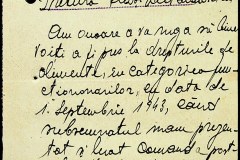 Am onoare a vă ruga să bine
voiți a fi pus la drepturile de
alimente, în categoria func
ționarilor, cu data de
1. Septembrie 1943, când
subsemnatul m'am prezen
tat și luat Comanda